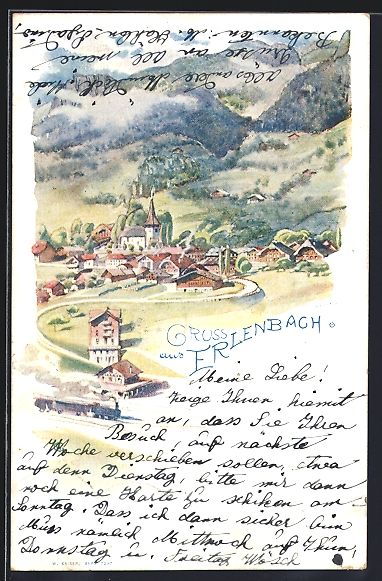 GRUSS
aus ERLENBACH.
Meine Liebe!
zeige Ihnen hiemit
an, dass Sie Ihren
Besuch, auf nächste
Woche verschieben sollen, etwa
auf denn Dienstag, bitte mir dann
noch eine Karte zu schiken am
Sonntag. Das ich dann sicher bin
Muss nämlich Mittwoch auf Thun,
Donnstag u. Freitag Wösch
alles andere
Grüsse an all meine
Bekannten